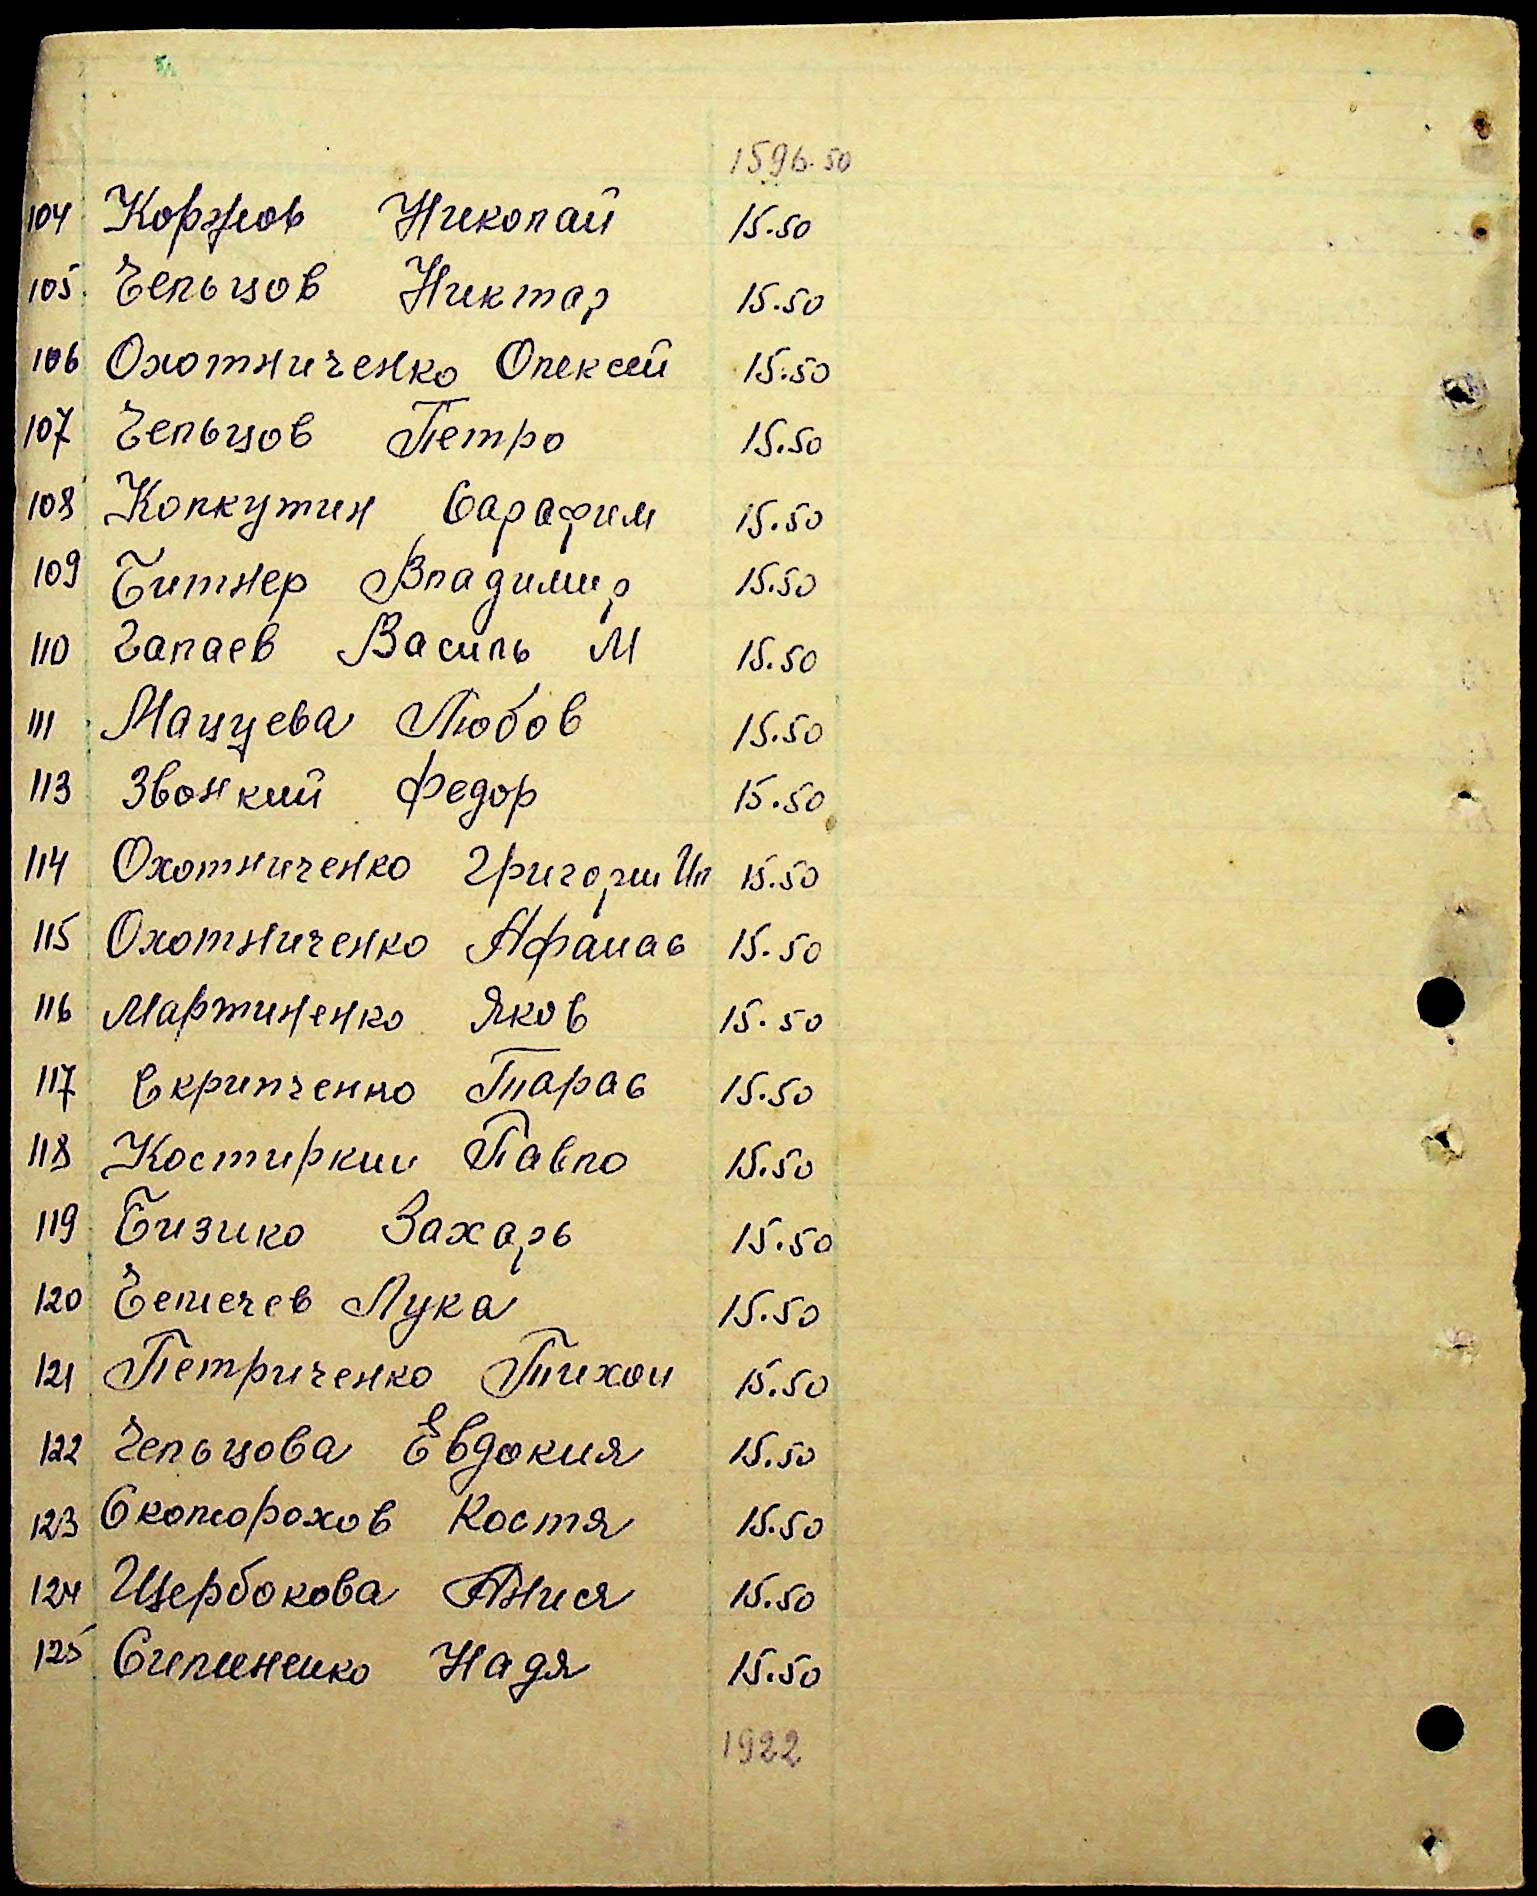 1596.50
104 Коржов Николай 15.50
105 Чельцов Никтар 15.50
106 Охотниченко Олексей 15.50
107 Чельцов Петро 15.50
108 Колкутин Сарафим 15.50
109 Битнер Владимир 15.50
110 Чапаев Василь М 15.50
111 Мацуева Любов 15.50
113 Звонкий Федор 15.50
114 Охотниченко Григорий Ил 15.50
115 Охотниченко Афанас 15.50
116 Мартиненко Яков 15.50
117 Скрипченко Тарас 15.50
118 Костиркин Павло 15.50
119 Бизико Захарь 15.50
120 Лука 15.50
121 Петриченко Тихон 15.50
122 Чельцова Евдокия 15.50
123 Скоморохов Костя 15.50
124 Щербокова Анися 15.50
125 Надя 15.50
1922